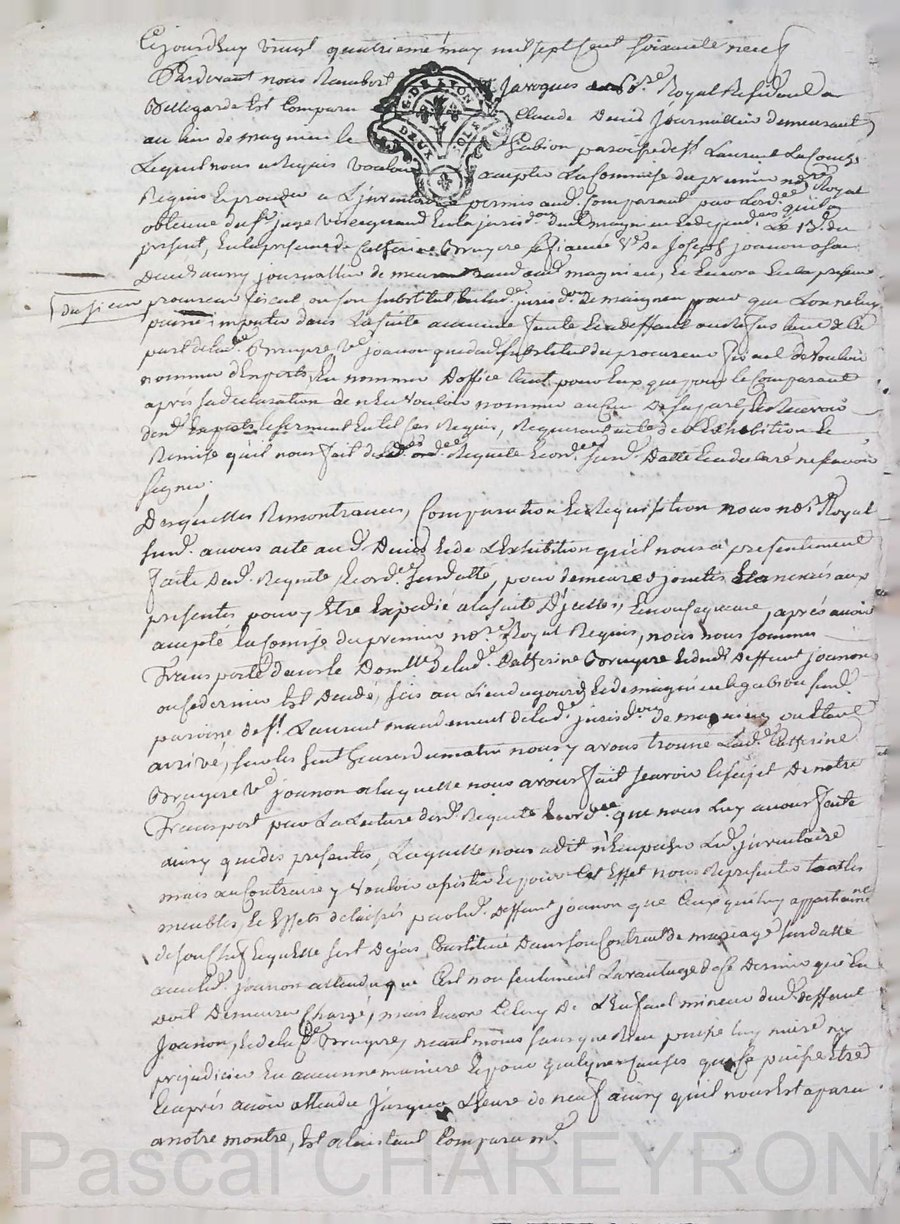 Cejourdhuy vingt quatrieme may mil sept cent soixante neuf
Pardevant nous Rambert Jaroques Royal Resident a
G. DE LYON
DEUX SOLS
Bellegarde Est Comparu Claude Denis Journallier demeurant
au lieu de magnieu le gabion paroisse de St Laurent La Conche
Lequel nous a Requis vouloir accepter La Commise du premier nore Royal
Requis Et proceder a L'inventaire permis aud. Comparant par ord.ce quil a
obtenue du Sr juge La jurisd.on de magnieu Le 13.e du
present, En la presence de Catherine Bruyere Ve De Joseph joanon
journallier demeurant aud. magnieu, Et Encore En la presence
du sieur
procureur fiscal ou son substitut En lad. jurisd.on de magnieu pour que Lon ne luy
puisse imputer dans La suite aucune faute Et a deffaut ou Refus tant de la
part de lad. Bruyere Ve joanon que dud. substitut du procureur fiscal de vouloir
nommer d'Experts, En nommer D'office tant pour Eux que pour le Comparant
apres sa declaration de n'En vouloir nommer aucun De sa part, Recevoir
desd. Experts le serment En tel cas Requis, Requerant acte de L'Exhibition Et
Remise quil nous fait desd. Requete Et ord.ce susd. Datte Et a declaré ne scavoir
signer.
Desquelles Remontrances, Comparution Et Requisition nous no.re Royal
susd. avons acte aud. Denis Et de L'Exhibition quil nous a presentement
faite Desd. Requete Et ord.ce susdatté, pour demeurer jointes Et annexées aux
presentes pour y Etre Expedié a la suite D'jcelles, En consequence, apres avoir
accepté la Comise du premier no.re Royal Requis, nous nous sommes
Transporté dans le Domille de lad. Catherine Bruyere Et dud. Deffunt joanon
ou ce dernier Est Decedé, scis au Lieu de magnieu le gabion susd.
paroisse de St. Laurent mandement de lad. jurisd.on de magnieu ou Etant
arrivé, sur les sept heures du matin nous y avons trouvé Lad. Catherine
Bruyere Ve joanon a laquelle nous avons fait scavoir le sujet De notre
Transport par La Lecture desd. Requete Et ord.ce que nous Luy avons faite
ainsy que des presentes, Laquelle nous a dit n'Empecher Led. jnventaire
mais au Contraire y vouloir assister Et pour Cet Effet nous Representer tous les
meubles, Et Effets delaissés par led. Deffunt joanon que Ceux qui luy appartiennent
de son Chef Et quelle s'est Dejas Constitué Dans son Contrat de mariage susdatté
avec led. joanon attendu que C'est non seulement L'avantage de Ce Dernier qui En
doit Demeurer Chargé, mais Encore Celuy De L'Enfant mineur dud. deffunt
Joanon, Et de la d.e Bruyere, neant moins sans que Rien puisse luy nuire ny
prejudicier En aucunne maniere Et pour quelques Causes que Ce puisse Etre
Et apres avoir attendu jusqu'a L'heure de neuf ainsy quil nous Est aparu
a notre montre, Est a L'instant Comparu me.
Pascal CHAREYRON